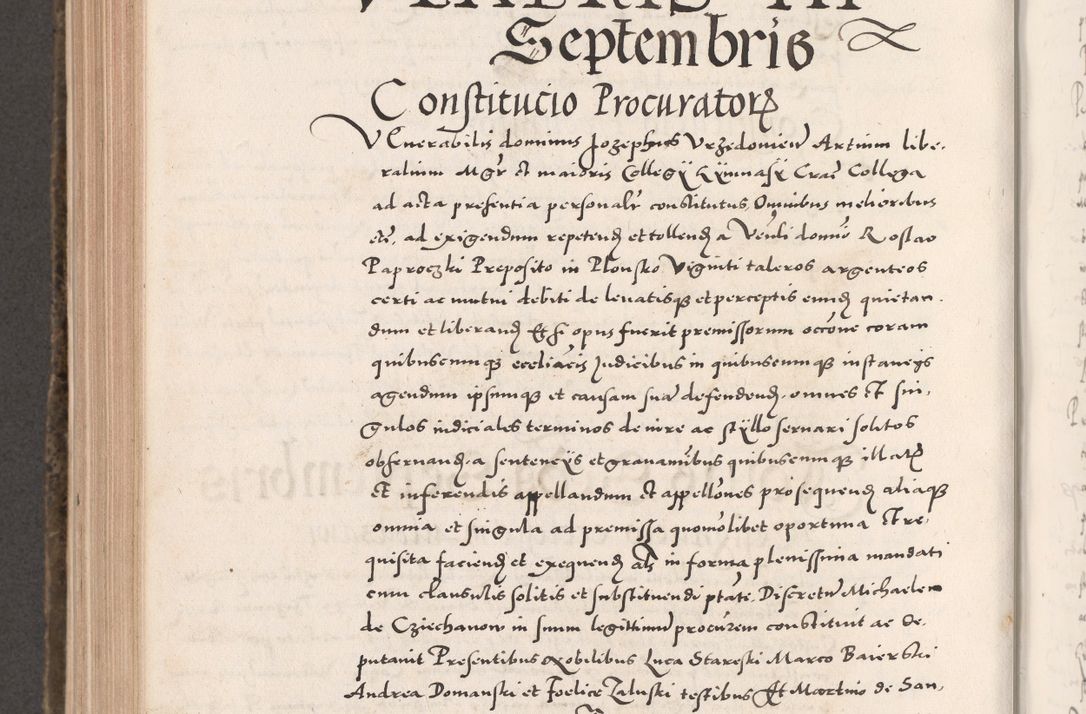 Septembris
Constitucio Procuratorꝝ
VEnerabilis dominus Jozephus Vrzedouien̄ Artium libe-
ralium Mgr̄ et maioris Collegÿ Gÿmnasÿ Crac̄ Collega
ad acta presentia personalr̄ constitutus, Omnibus melioribus
etc̄, ad exigendum repetendꝫ et tollendꝫ a Venl̄i domīo Rostao
Paproczki Preposito in Plonsko Viginti taleros argenteos
certi ac mutui debiti de leuatisqꝫ et perceptis eundꝫ quietan-
dum et liberandꝫ Et si opus fuerit premissorum occōne coram
quibuscumqꝫ eccl̄iacis Judicibus in quibuscumqꝫ instancÿs
agendum ipsumqꝫ et causam suā defendendꝫ, omnes et sin-
gulos iudiciales terminos de iure ac stÿllo seruari solitos
obseruandꝫ, a sentencÿs et grauaminībus quibuscumqꝫ illatꝭ
et inferendis appellandum et appellōnes prosequendꝫ aliaqꝫ
omnia et singula ad premissa quomōlibet oportuna et re-
quisita faciendꝫ et exequendꝫ als̄ in forma plenissima mandati
cum clausulis solitis et substituendi ptāte, Discretū Michaelem
de Cziechanow in suum legittimū procūrem constituit ac de-
putauit Presentibus Nobilibus Luca Stareski Marco Baierski
Andrea Domanski et Foelice Zaluski testibus Et Martino de San-